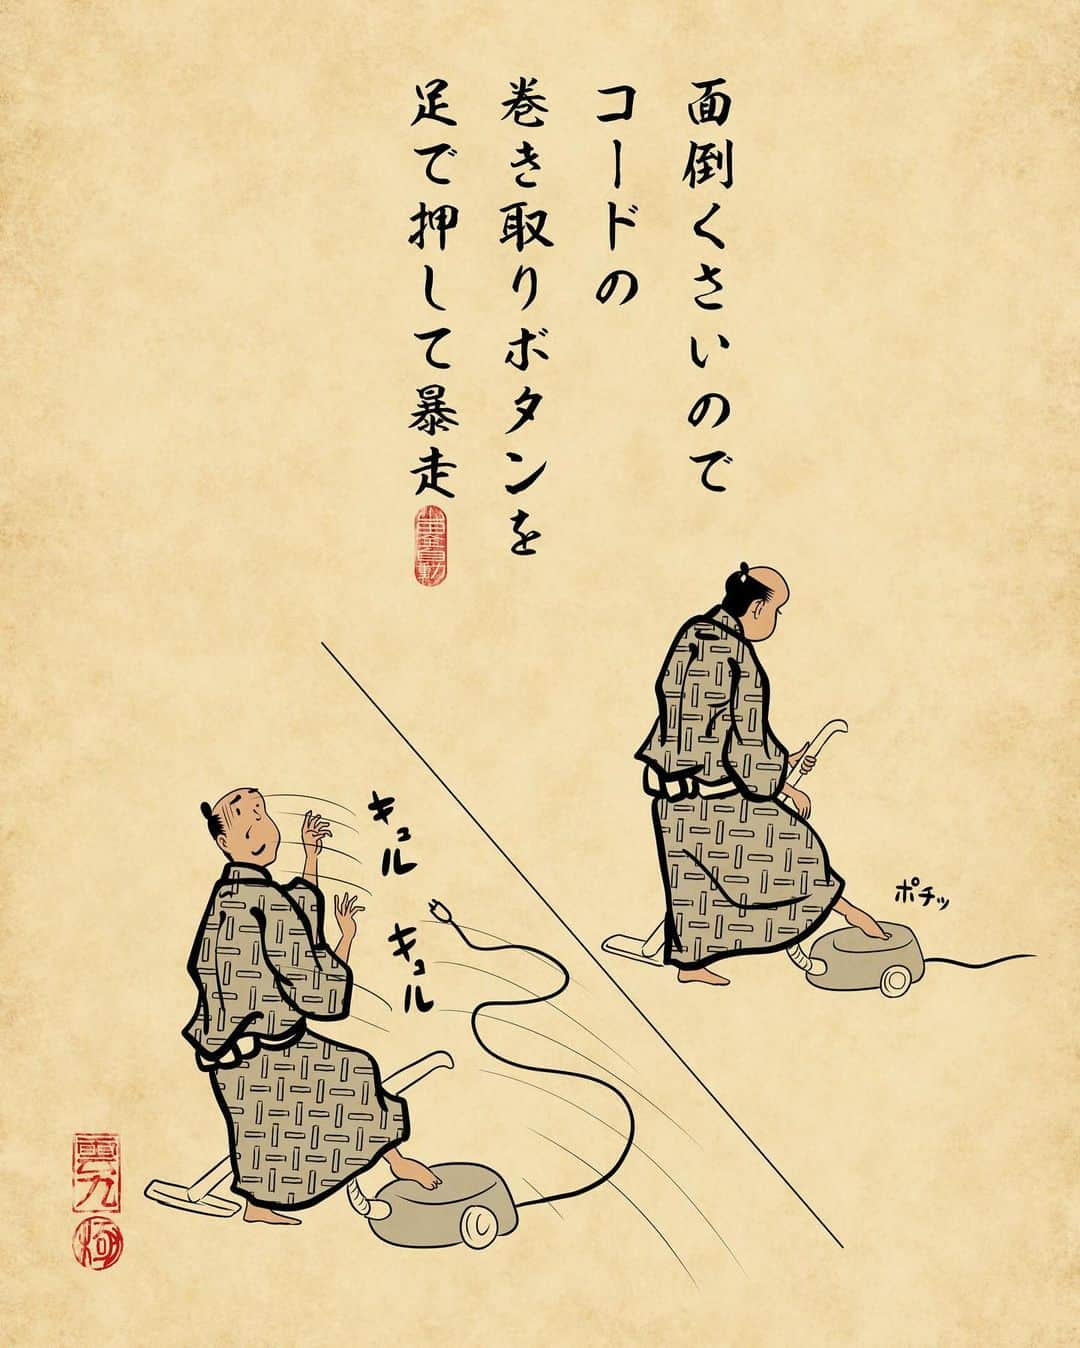 面倒くさいので
コードの
巻き取りボタンを
足で押して暴走
ポチッ
キュル
キュル